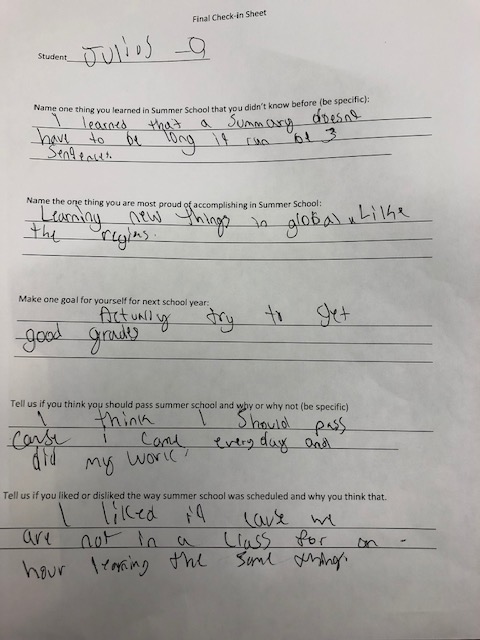 Final Check-in Sheet
Student Julios -9
Name one thing you learned in Summer School that you didn't know before (be specific):
I learned that a Summary doesnt
have to be long it can be 3
Sentences.
Name the one thing you are most proud of accomplishing in Summer School:
Learning new things in global Like
the regins.
Make one goal for yourself for next school year:
Actually try to get
good grades
Tell us if you think you should pass summer school and why or why not (be specific)
I think I Should pass
cause i came every day and
did my work
Tell us if you liked or disliked the way summer school was scheduled and why you think that.
I liked it cause we
are not in a class for an -
hour learning the same things.